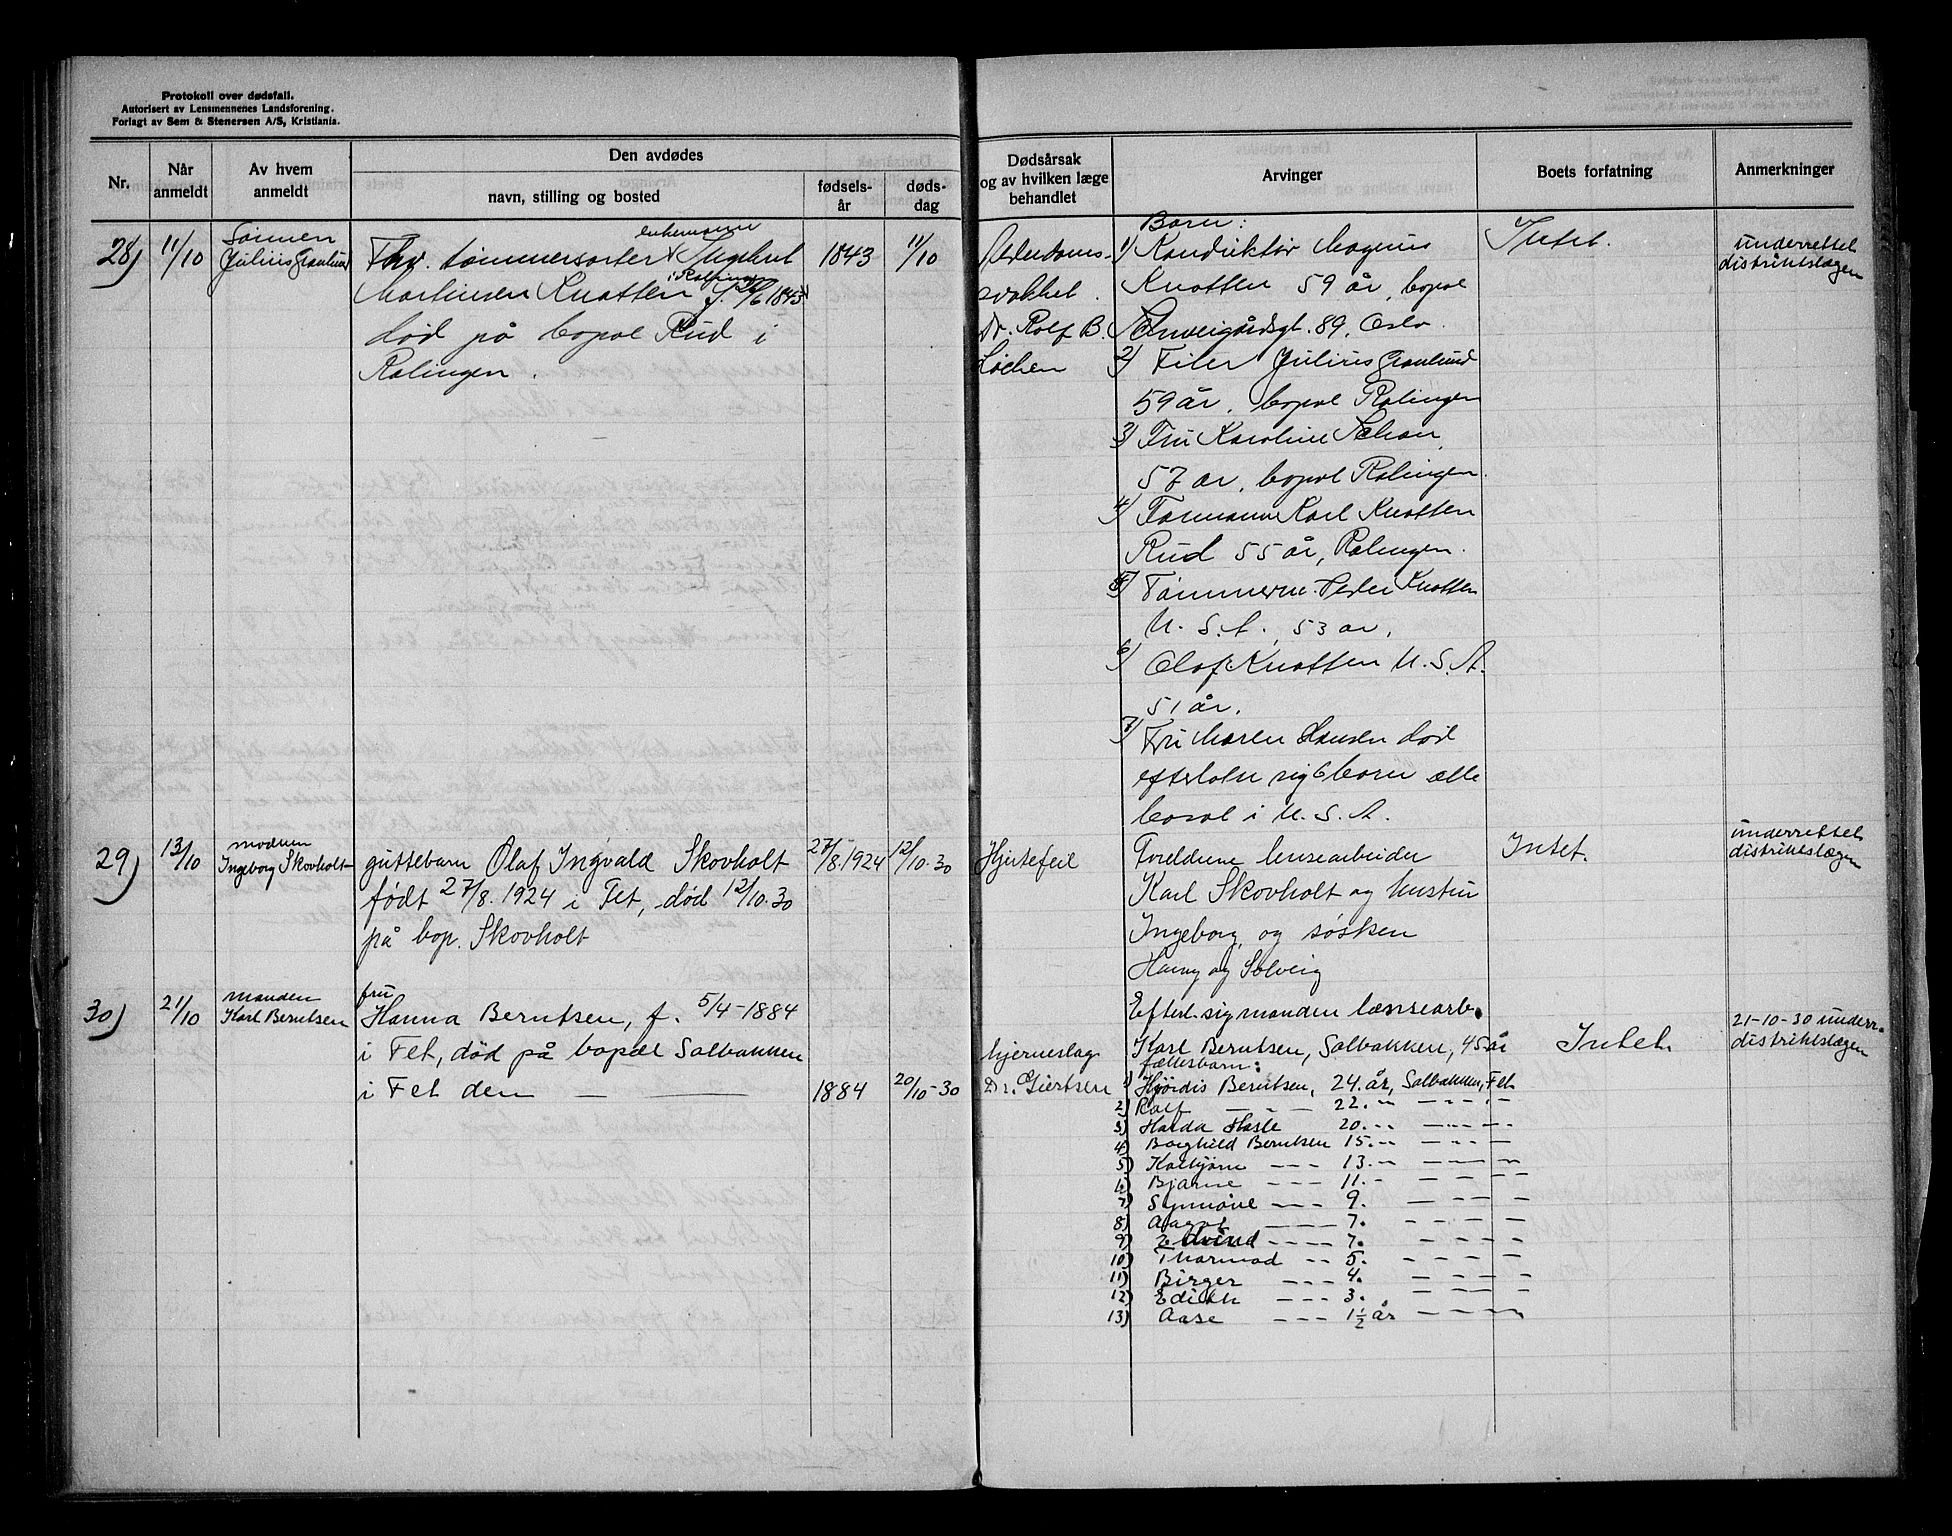 Protokoll over dødsfall.
Autorisert av Lensmennenes Landsforening.
Forlagt av Sem & Stenersen A/S, Kristiania.
Nr.
Når anmeldt
Av hvem anmeldt
Den avdødes
navn, stilling og bosted
fødsels-år
døds-dag
Dødsårsak og av hvilken læge behandlet
Arvinger
Boets forfatning
Anmerkninger
28)
11/10
Sønnen
Julius Granlund
enkemann
Fhv. tømmersorter Engebret
i Rælingen
Martinsen Knatten f. 1843
død på bopæl Rud i
Rælingen.
1843
11/10
Alderdoms-
svakhet.
Dr. Rolf B.
Løchen
Barn:
1) Konduktør Magnus
Knatten 59 år, bopæl
Schweigårdsgt. 89, Oslo.
2) Filer Julius Granlund
59 år, bopæl Rælingen
3) Fru Karoline
57 år, bopæl Rælingen.
4) Formann Karl Knatten
Rud 55 år, Rælingen.
5) Tømmerm. Peder Knatten
U.S.A., 53 år,
6) Olaf Knatten U.S.A.
51 år.
7) Fru Maren Hansen død
efterlatt sig 6 barn alle
bosat i U.S.A.
Intet.
underrettet
distriktslægen
29)
13/10
modren
Ingeborg Skovholt
guttebarn Olaf Ingvald Skovholt
født 27/8. 1924 i Fet, død 12/10.30
på bop. Skovholt
27/8.1924
12/10.30
Hjertefeil
Foreldrene lensearbeider
Karl Skovholt og hustru
Ingeborg, og søsken
Harry og Solveig
Intet.
underrettet
distriktslægen
30)
21/10
manden
Karl Berntsen
fru
Hanna Berntsen, f. 5/4-1884
i Fet, død på bopæl Solbakken
i Fet den — —
1884
20/10-30
hjerneslag
Dr. Giertsen
Efterl. sig manden lænsearb.
Karl Berntsen, Solbakken, 45 år
fællesbarn:
1) Hjørdis Berntsen, 24. år, Solbakken, Fet
2) Rolf — - — 22. -"- — - - -
3) Harda Hasle 20. - - - — - - -
4) Borghild Berntsen 15. -"- — - - -
5) Kolbjørn - - - 13. -"- — - - -
6) Bjarne - - - 11. - - - - -
7) Synnøve - - - 9. — - - -
8) Aagot — — — 7. - - - -
9) Edvind - - - - 7. - - - -
10) Thormod - - 5. - - - -
11) Birger - - - 4. — - - -
12) Edith - - - 3. — - - -
13) Aase — - - 1½ år — - - -
Intet.
21-10-30 underr.
distriktslægen